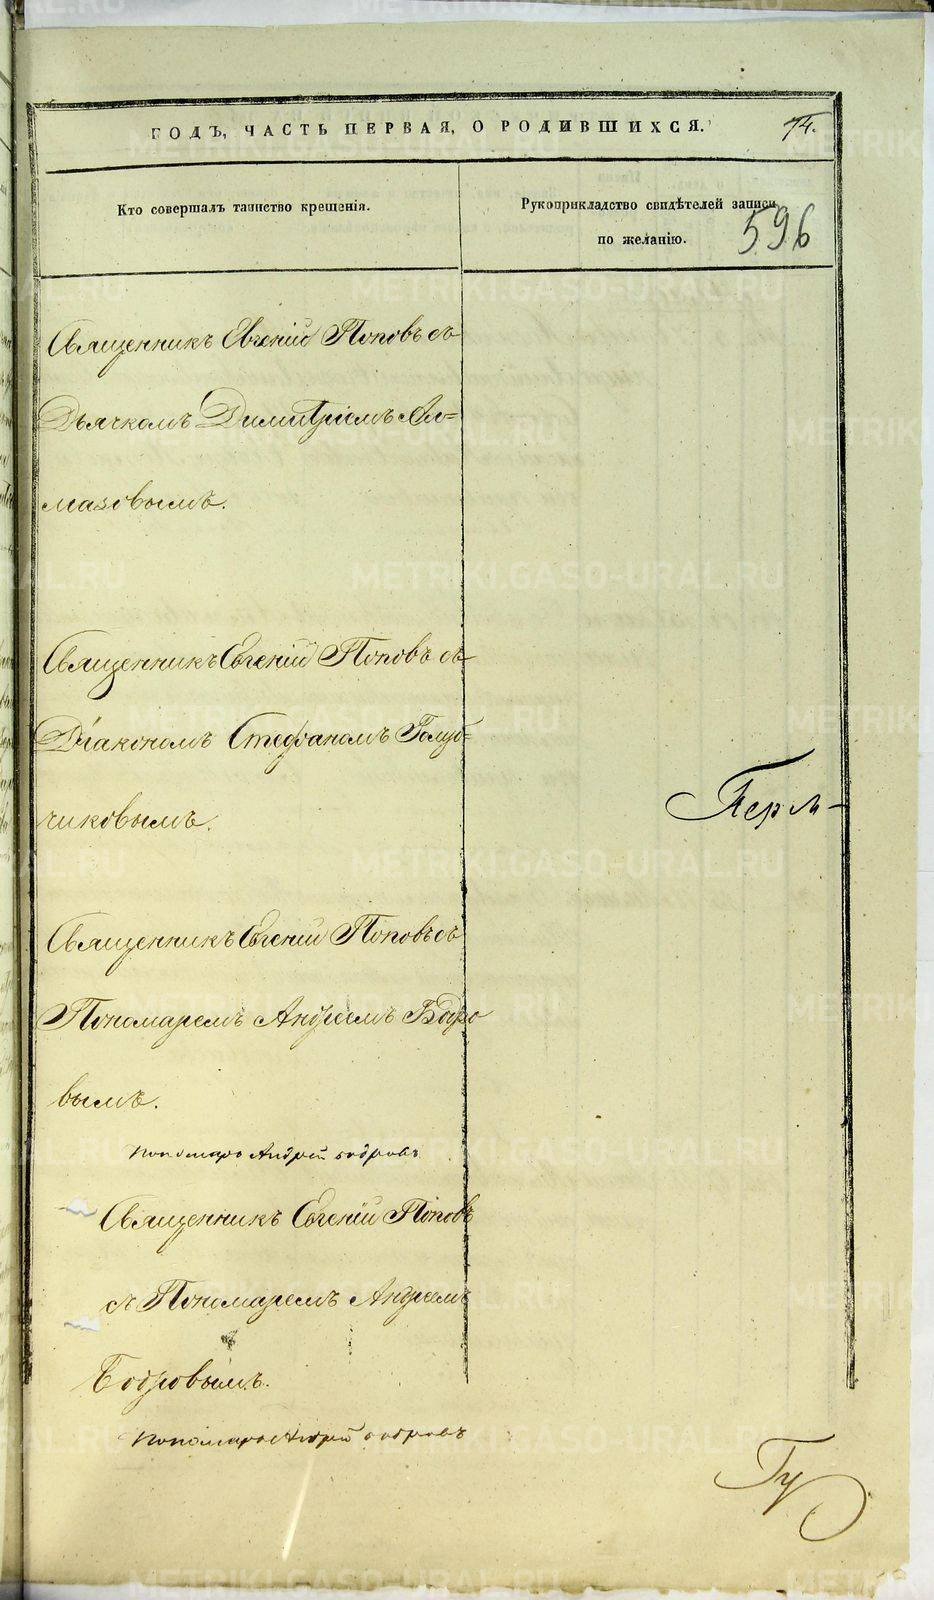 ГОДЪ, ЧАСТЬ ПЕРВАЯ, О РОДИВШИХСЯ.
74.
Кто совершалъ таинство крещенія.
Рукоприкладство свидѣтелей записи
по желанію.
596
Священникъ Евгеній Поповъ съ
Дьячкомъ Димитріемъ Ал-
мазовымъ.
Священникъ Евгеній Поповъ съ
Діакономъ Стефаномъ Голуб-
чиковымъ.
Перм-
Священникъ Евгеній Поповъ съ
Пономаремъ Андреемъ Бодро
вымъ.
пономарь Андрей бодровъ
Священникъ Евгеній Поповъ
съ Пономаремъ Андреемъ
Бодровымъ.
пономарь Андрей бодровъ
Гу
METRIKI.GASO-URAL.RU